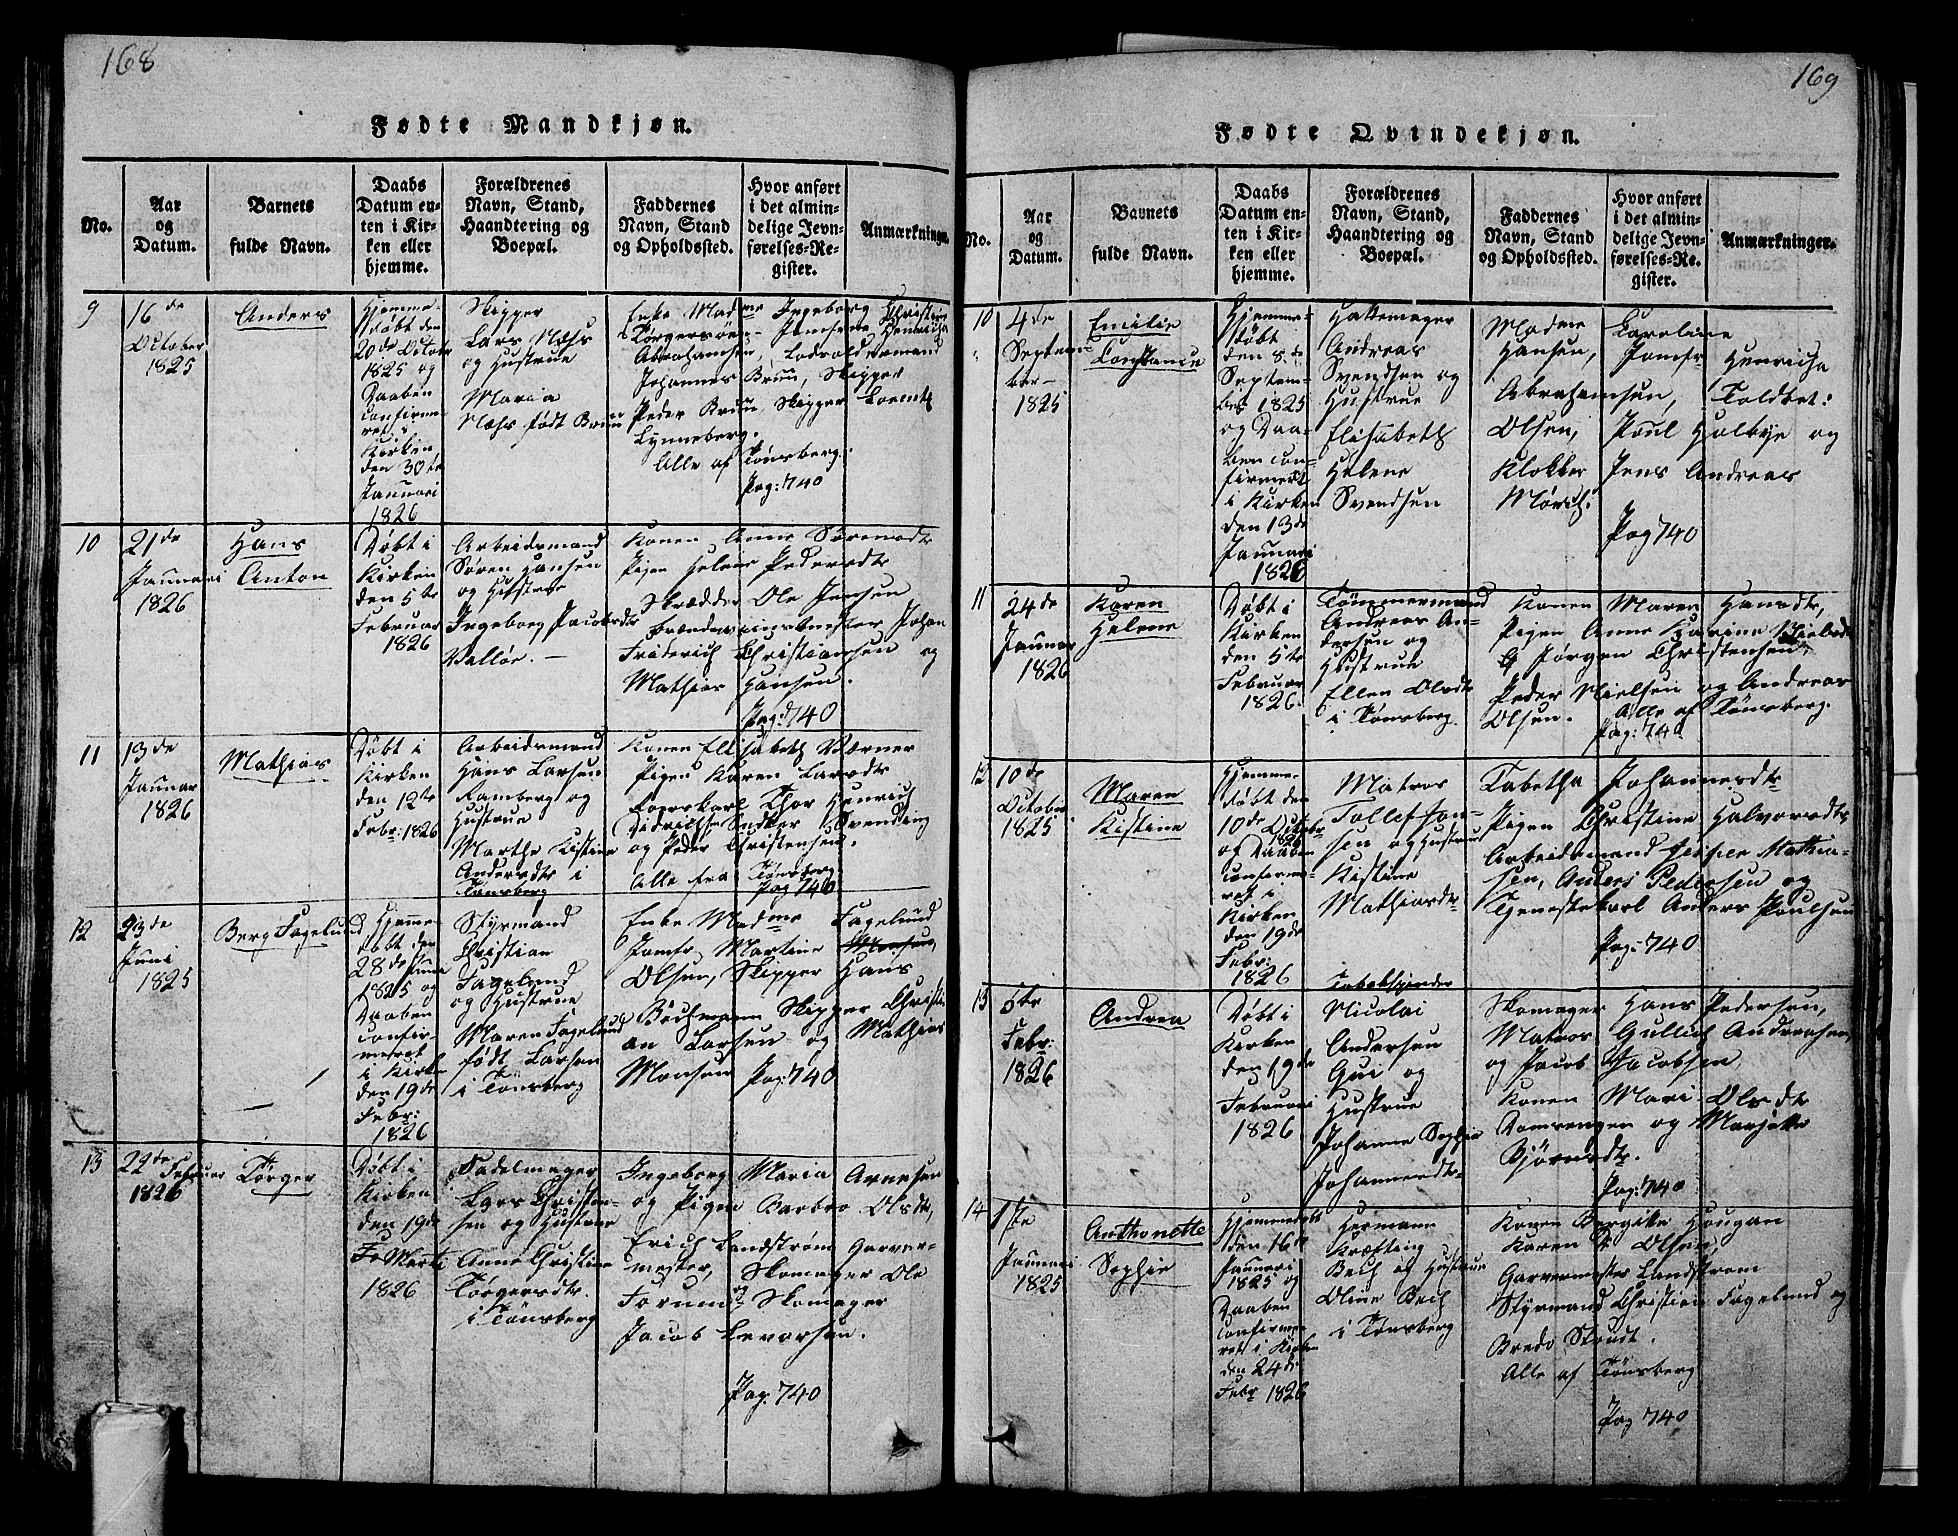 168
Fødte Mandkjøn.
No.
Aar
og
Datum.
Barnets
fulde Navn.
Daabs
Datum en-
ten i Kir-
ken eller
hjemme.
Forældrenes
Navn, Stand,
Haandtering og
Boepæl.
Faddernes
Navn, Stand
og Opholdssted.
Hvor anført
i det almin-
delige Jevn-
førelses-Re-
gister.
Anmærkninger.
9
16de
October
1825
Anders
Hjemme-
døbt den
20de Octobr
1825 og
Daaben
confirme-
ret i
Kirken
den 30te
Januari
1826
Skipper
Lars Næss
og Hustrue
Maria
Næss født Bruun
Enke Madme Ingeborg Christine
Tørgersøn- Jomfrue Henricha
Abrahamsen, Lodsoldermand
Johannes Bruun, Skipper
Peder Bruun, Skipper Lorentz
Lynneberg.
Alle af Tønsberg.
Pag: 740
10
21de
Januari
1826
Hans
Anton
Døbt i
Kirken
den 5te
Februar
1826
Arbeidsmand
Søren Hansen
og Hustrue
Ingeborg Jacobsdr
Valløe.
Konen Anne Sørensdtr
Pigen Helene Pedersdtr
Skrædder Ole Jensen
Brændeviinsmester Johan
Friderich Christiansen og
Mathias Hansen.
Pag: 740
11
13de
Januar
1826
Mathias
Døbt i
Kirken
den 12te
Febr: 1826
Arbeidsmand
Hans Larsen
Ramberg og
Hustrue
Marthe Kistine
Andersdtr i
Tønsberg
Konen Elisabeth Værner
Pigen Karen Larsdtr
Thor Henrich
Svending
og Peder Christensen.
Alle fra Tønsberg.
Pag 740
12
23de
Juni
1825
Berg Fagelund
Hjemme-
døbt den
28de Juni
1825 og
Daaben
confir-
meret
i Kirke
den 19de
Febr:
1826
Styrmand
Christian
Fagelund
og Hustrue
Maren Fagelund
født Larsen
i Tønsberg
Enke Madme Fagelund
Jomfr Martine Monsen,
Olsen, Skipper Hans
Bochmann Skipper Christi
an Larsen og Mathias
Monsen Pag: 740
13
22de Februar
1826
Tørger
Døbt i
Kirken
den 19de
Fe Marti
1826
Sadelmager
Lars Christen-
sen og Hustrue
Anne Christine
Tørgersdtr.
i Tønsberg
Ingeborg Maria Arnesen
og Pigen Barbro Olsdtr,
Erich Landstrøm Garver-
mester, Skomager Ole
Forum og Skomager
Jacob Levorsen.
Pag: 740
169
Fødte Qvindekjøn.
No.
Aar
og
Datum.
Barnets
fulde Navn.
Daabs
Datum en-
ten i Kir-
ken eller
hjemme.
Forældrenes
Navn, Stand,
Haandtering og
Boepæl.
Faddernes
Navn, Stand
og Opholdssted.
Hvor anført
i det almin-
delige Jevn-
førelses-Re-
gister.
Anmærkninger.
10
4de
Septem-
ber-
1825
Emilie
Constance
Hjemme-
døbt
den 8de
Septem-
ber 1825
og Daa-
ben con-
firmert
i Kirken
den 13de
Januari
1826
Hattemager
Andreas
Svendsen og
Hustrue
Elisabeth
Helene
Svendsen
Madme Caroline
Hansen, Jomfr Henricha
Abrahamsen, Toldbet:
Olsen, Poul Holbye og
Klokker Jens Andreas
Mørch.
Pag 740
11
24de
Januar
1826
Karen
Helene
Døbt i
Kirken
den 5te
Februar
1826.
Tømmermand
Andreas An-
dersen og
Hustrue
Ellen Olsdtr
i Tønsberg.
Konen Maren Hansdtr,
Pigen Anne Karine Nielsdtr
Jørgen Christensen,
Peder Nielsen og Andreas
Olsen. Alle af Tønsberg.
Pag: 740
12
10de
October
1825
Maren
Kistine
Hjemme-
døbt den
10de Octobr
1825
og Daaben
confirme-
ret i
Kirken
den 19de
Febr:
1826
Matros
Tollef Han-
sen og Hustrue
Kistine
Mathiasdtr
Tabetha Johannesdtr
Pigen Christine Halvorsdtr
Arbeidsmand Jesper Mathia-
sen, Anders Pedersen og
Tjenestekarl Anders Poulsen
Pag: 740
13
5te
Febr:
1826
Andrea
Døbt i
Kirken
den 19de
Februari
1826
Tobakspinder
Nicolai
Andersen
Gui og
Hustrue
Johanne Sophie
Johannesdtr.
Skomager Hans Pedersen,
Matros Gullich Andreasen
og Jacob Jacobsen,
Konen Mari Olsdtr
og Marjethe
Bjørnsdtr.
Pag: 740
14
1ste
Januari
1825
Anthonette
Sophie
Hjemmedøbt
den 16de
Januari
1825 og
Daaben
confirme-
ret i Kirken
den 24de
Febr 1826
Hermann
Kræfting
Bech og Hustrue
Oline Bech
i Tønsberg
Konen Bergithe Hougan
Karen Olsen,
Garvermester Landstrøm
Styrmand Christian Fagelund og
Bredo Stoudt.
Alle af Tønsberg
Pag 740